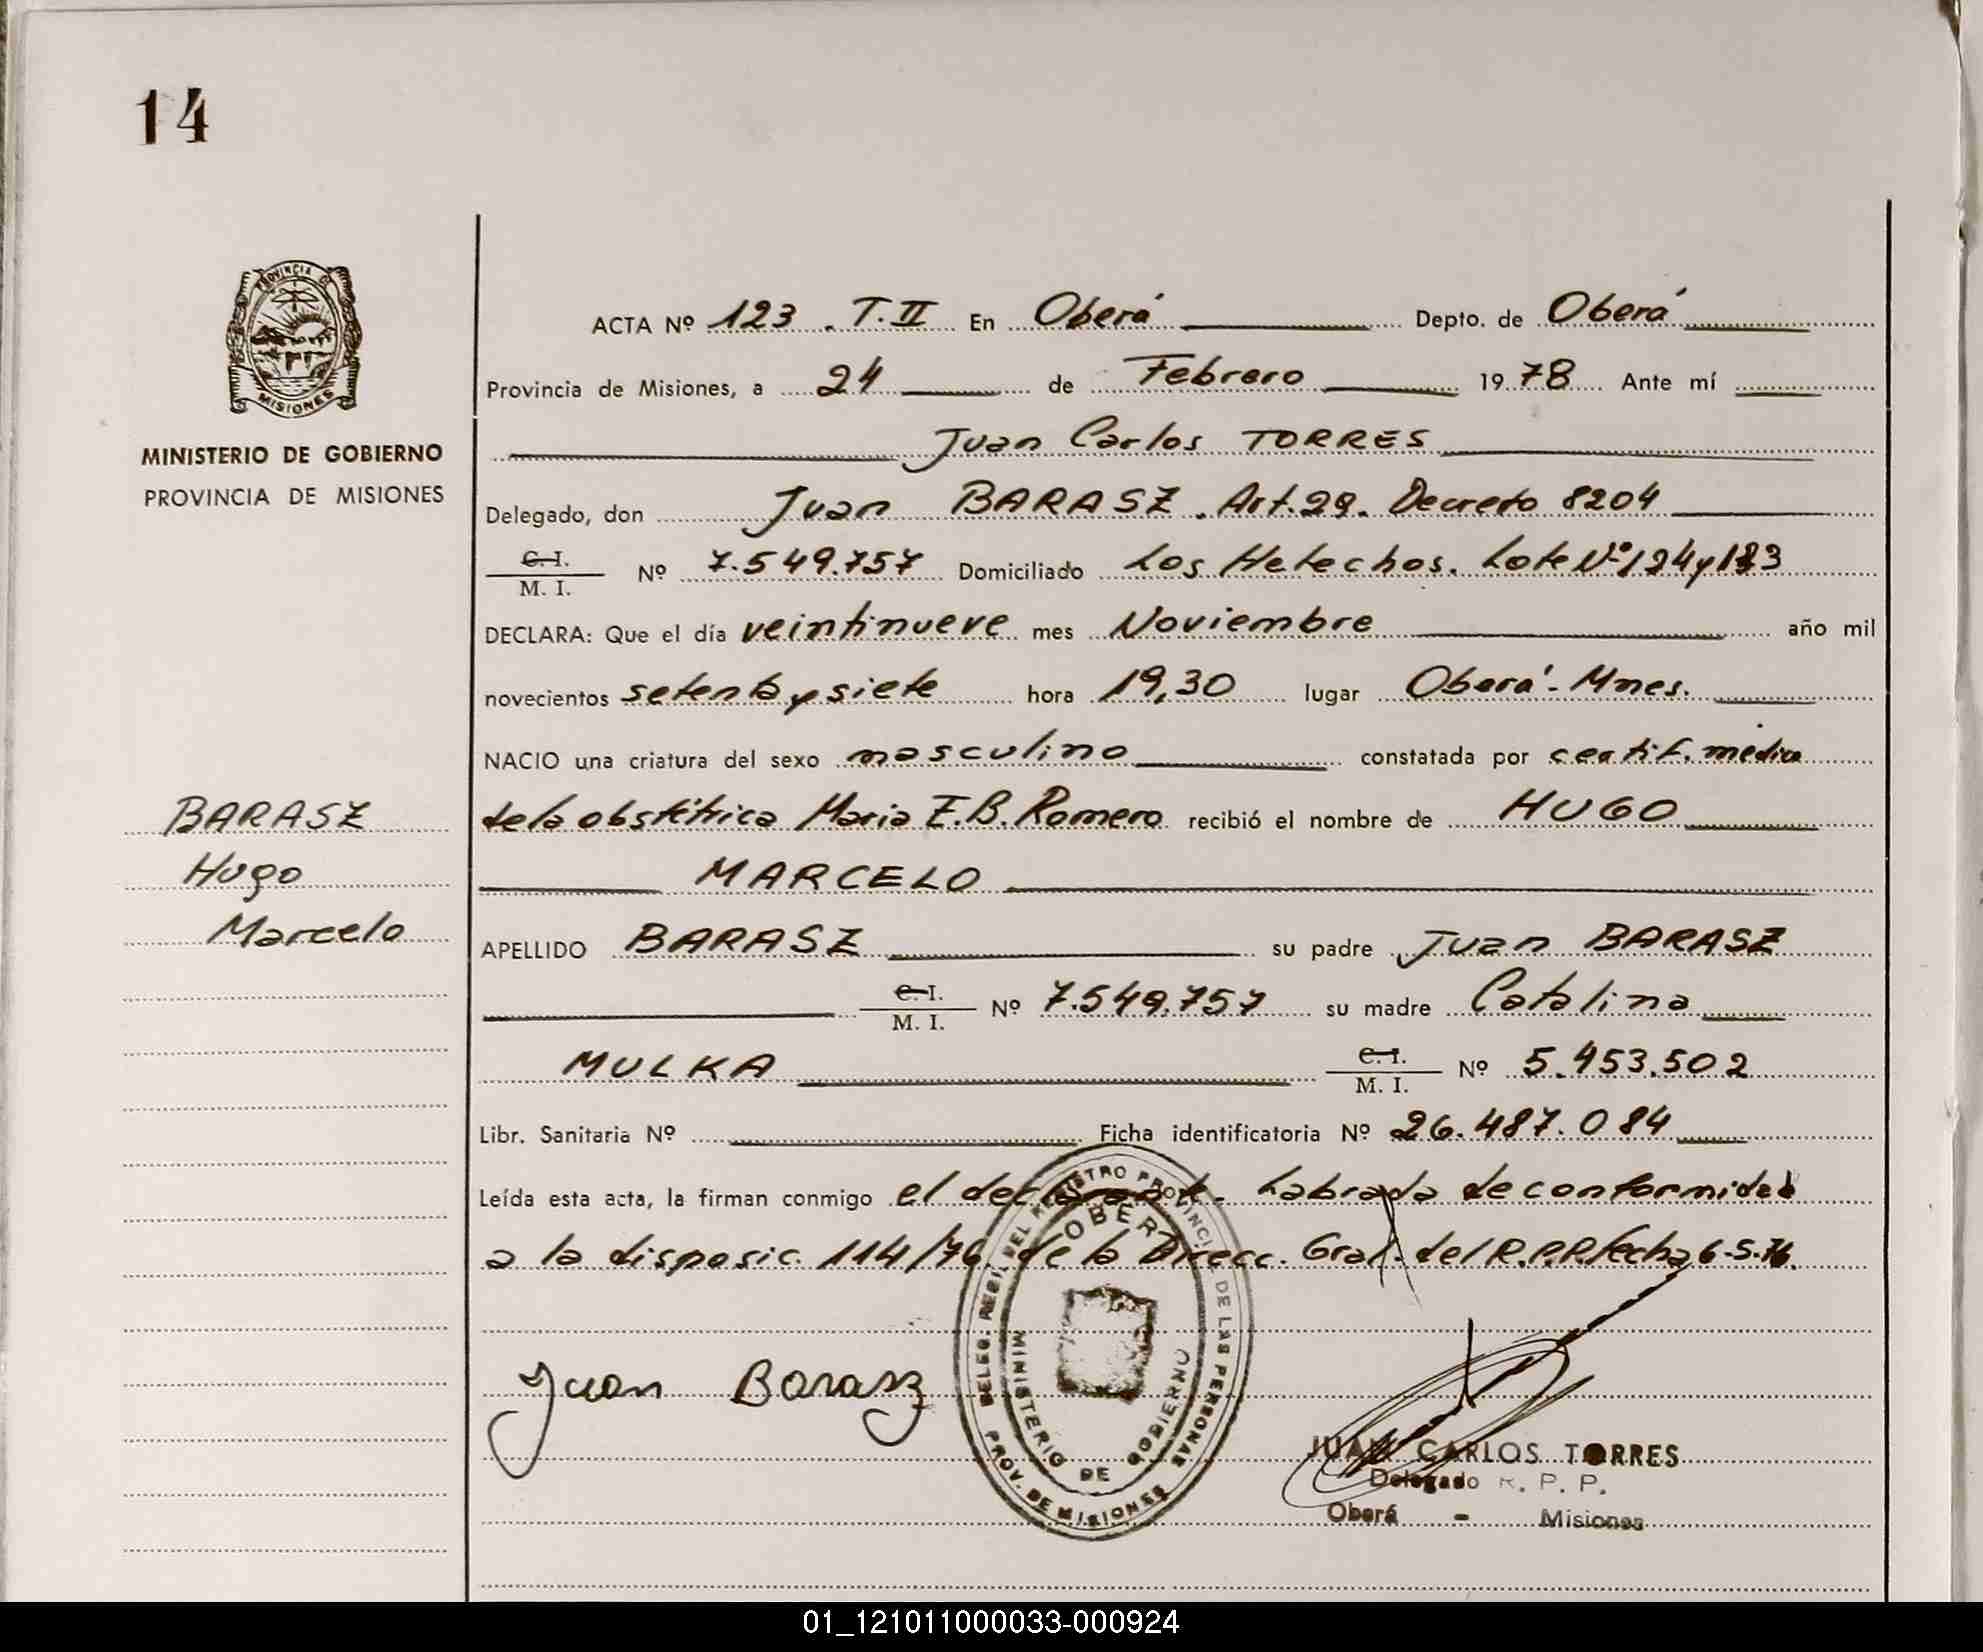 14
PROVINCIA DE
MISIONES
MINISTERIO DE GOBIERNO
PROVINCIA DE MISIONES
ACTA Nº 123 . T. II En Oberá Depto. de Oberá
Provincia de Misiones, a 24 de Febrero 1978 Ante mí
Juan Carlos TORRES
Delegado, don Juan BARASZ. Art. 29. Decreto 8204
C. I. / M. I. Nº 7.549.757 Domiciliado Los Helechos. Lote Nº 124 y 123
DECLARA: Que el día veintinueve mes Noviembre año mil
novecientos setenta y siete hora 19,30 lugar Oberá - Mnes.
NACIO una criatura del sexo masculino constatada por certif. médico
de la obstétrica Maria E. B. Romero recibió el nombre de HUGO
MARCELO
BARASZ
Hugo
Marcelo
APELLIDO BARASZ su padre Juan BARASZ
C. I. / M. I. Nº 7.549.757 su madre Catalina
MULKA C. I. / M. I. Nº 5.453.502
Libr. Sanitaria Nº Ficha identificatoria Nº 26.487.084
Leída esta acta, la firman conmigo el declarante. Labrada de conformidad
a la disposic. 114/76 de la Direcc. Gral. del R.P.P. fecha 6-5-76.
DELEG. REGIL DEL REGISTRO PROVINCIAL DE LAS PERSONAS
OBERA
MINISTERIO DE GOBIERNO
PROV. DE MISIONES
Juan Barasz
JUAN CARLOS TORRES
Delegado R. P. P.
Oberá - Misiones
01_121011000033-000924